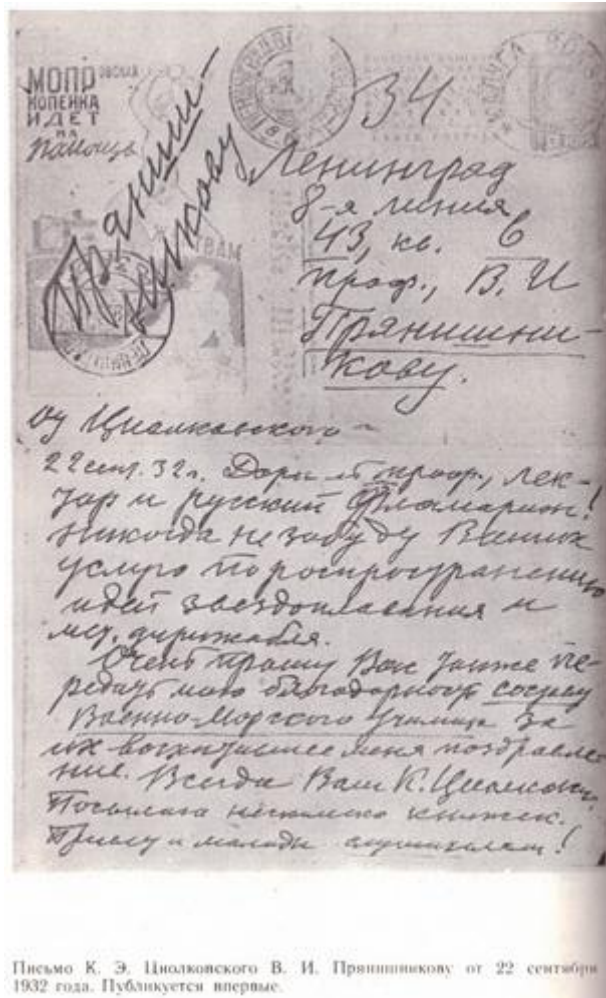 МОПРОВСКАЯ
КОПЕЙКА
ИДЕТ
НА
Помощь
Пряниш-
никову
34
Ленинград
8-я линия
43, кв. 6
проф., В. И
Прянишни-
кову.
От Циолковского
22 сент. 32 г. Дорогой проф., лек-
тор и русский Фламарион!
Никогда не забуду Ваших
услуг по распространению
идей звездоплавания и
мет. дирижабля.
Очень прошу Вас также пе-
редать мою благодарность составу
Военно-Морского Училища за
их восхитившее меня поздравле-
ние. Всегда Ваш К. Циолковский
Посылаю несколько книжек.
Привет и молодым слушателям!
Письмо К. Э. Циолковского В. И. Прянишникову от 22 сентября
1932 года. Публикуется впервые.